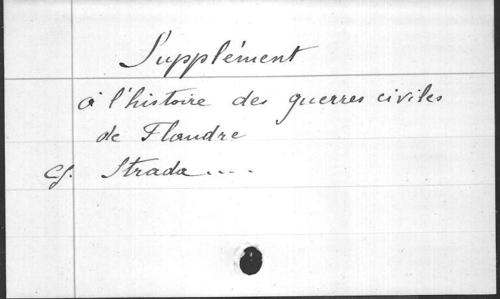 Supplément
à l'histoire des guerres civiles
de Flandre
Cf. Strada....